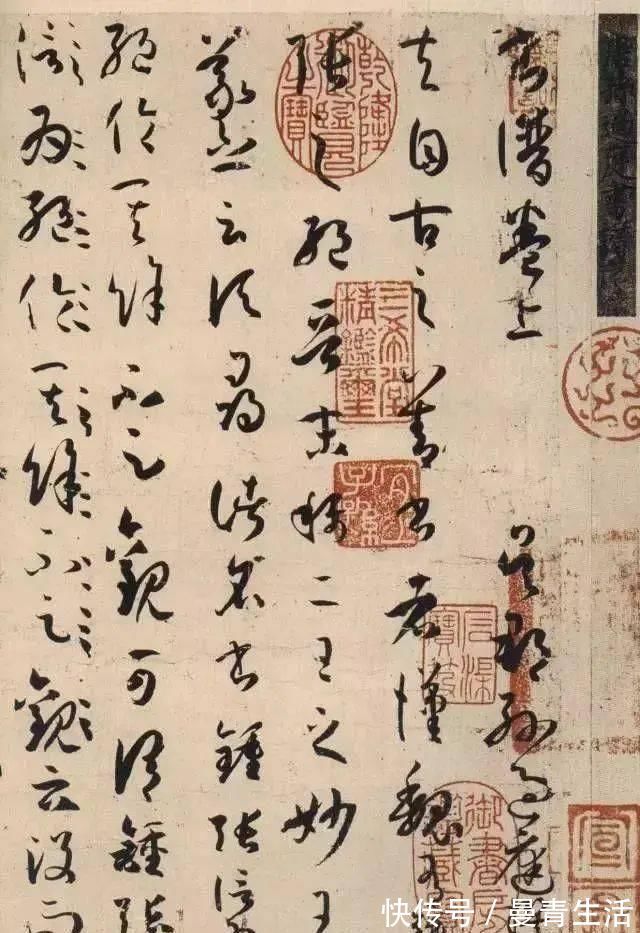 書譜卷上 吳郡孫過庭
夫自古之善書者漢魏有
張之絕晉末稱二王之妙王
羲之云頃尋諸名書鍾張信
絕倫其餘不足觀可謂鍾張
信為絕倫其餘不足觀云沒而
乾隆御覽之寶
三希堂精鑑璽
宜子孫
石渠寶笈
御書
宣
快传号 / 曼青生活